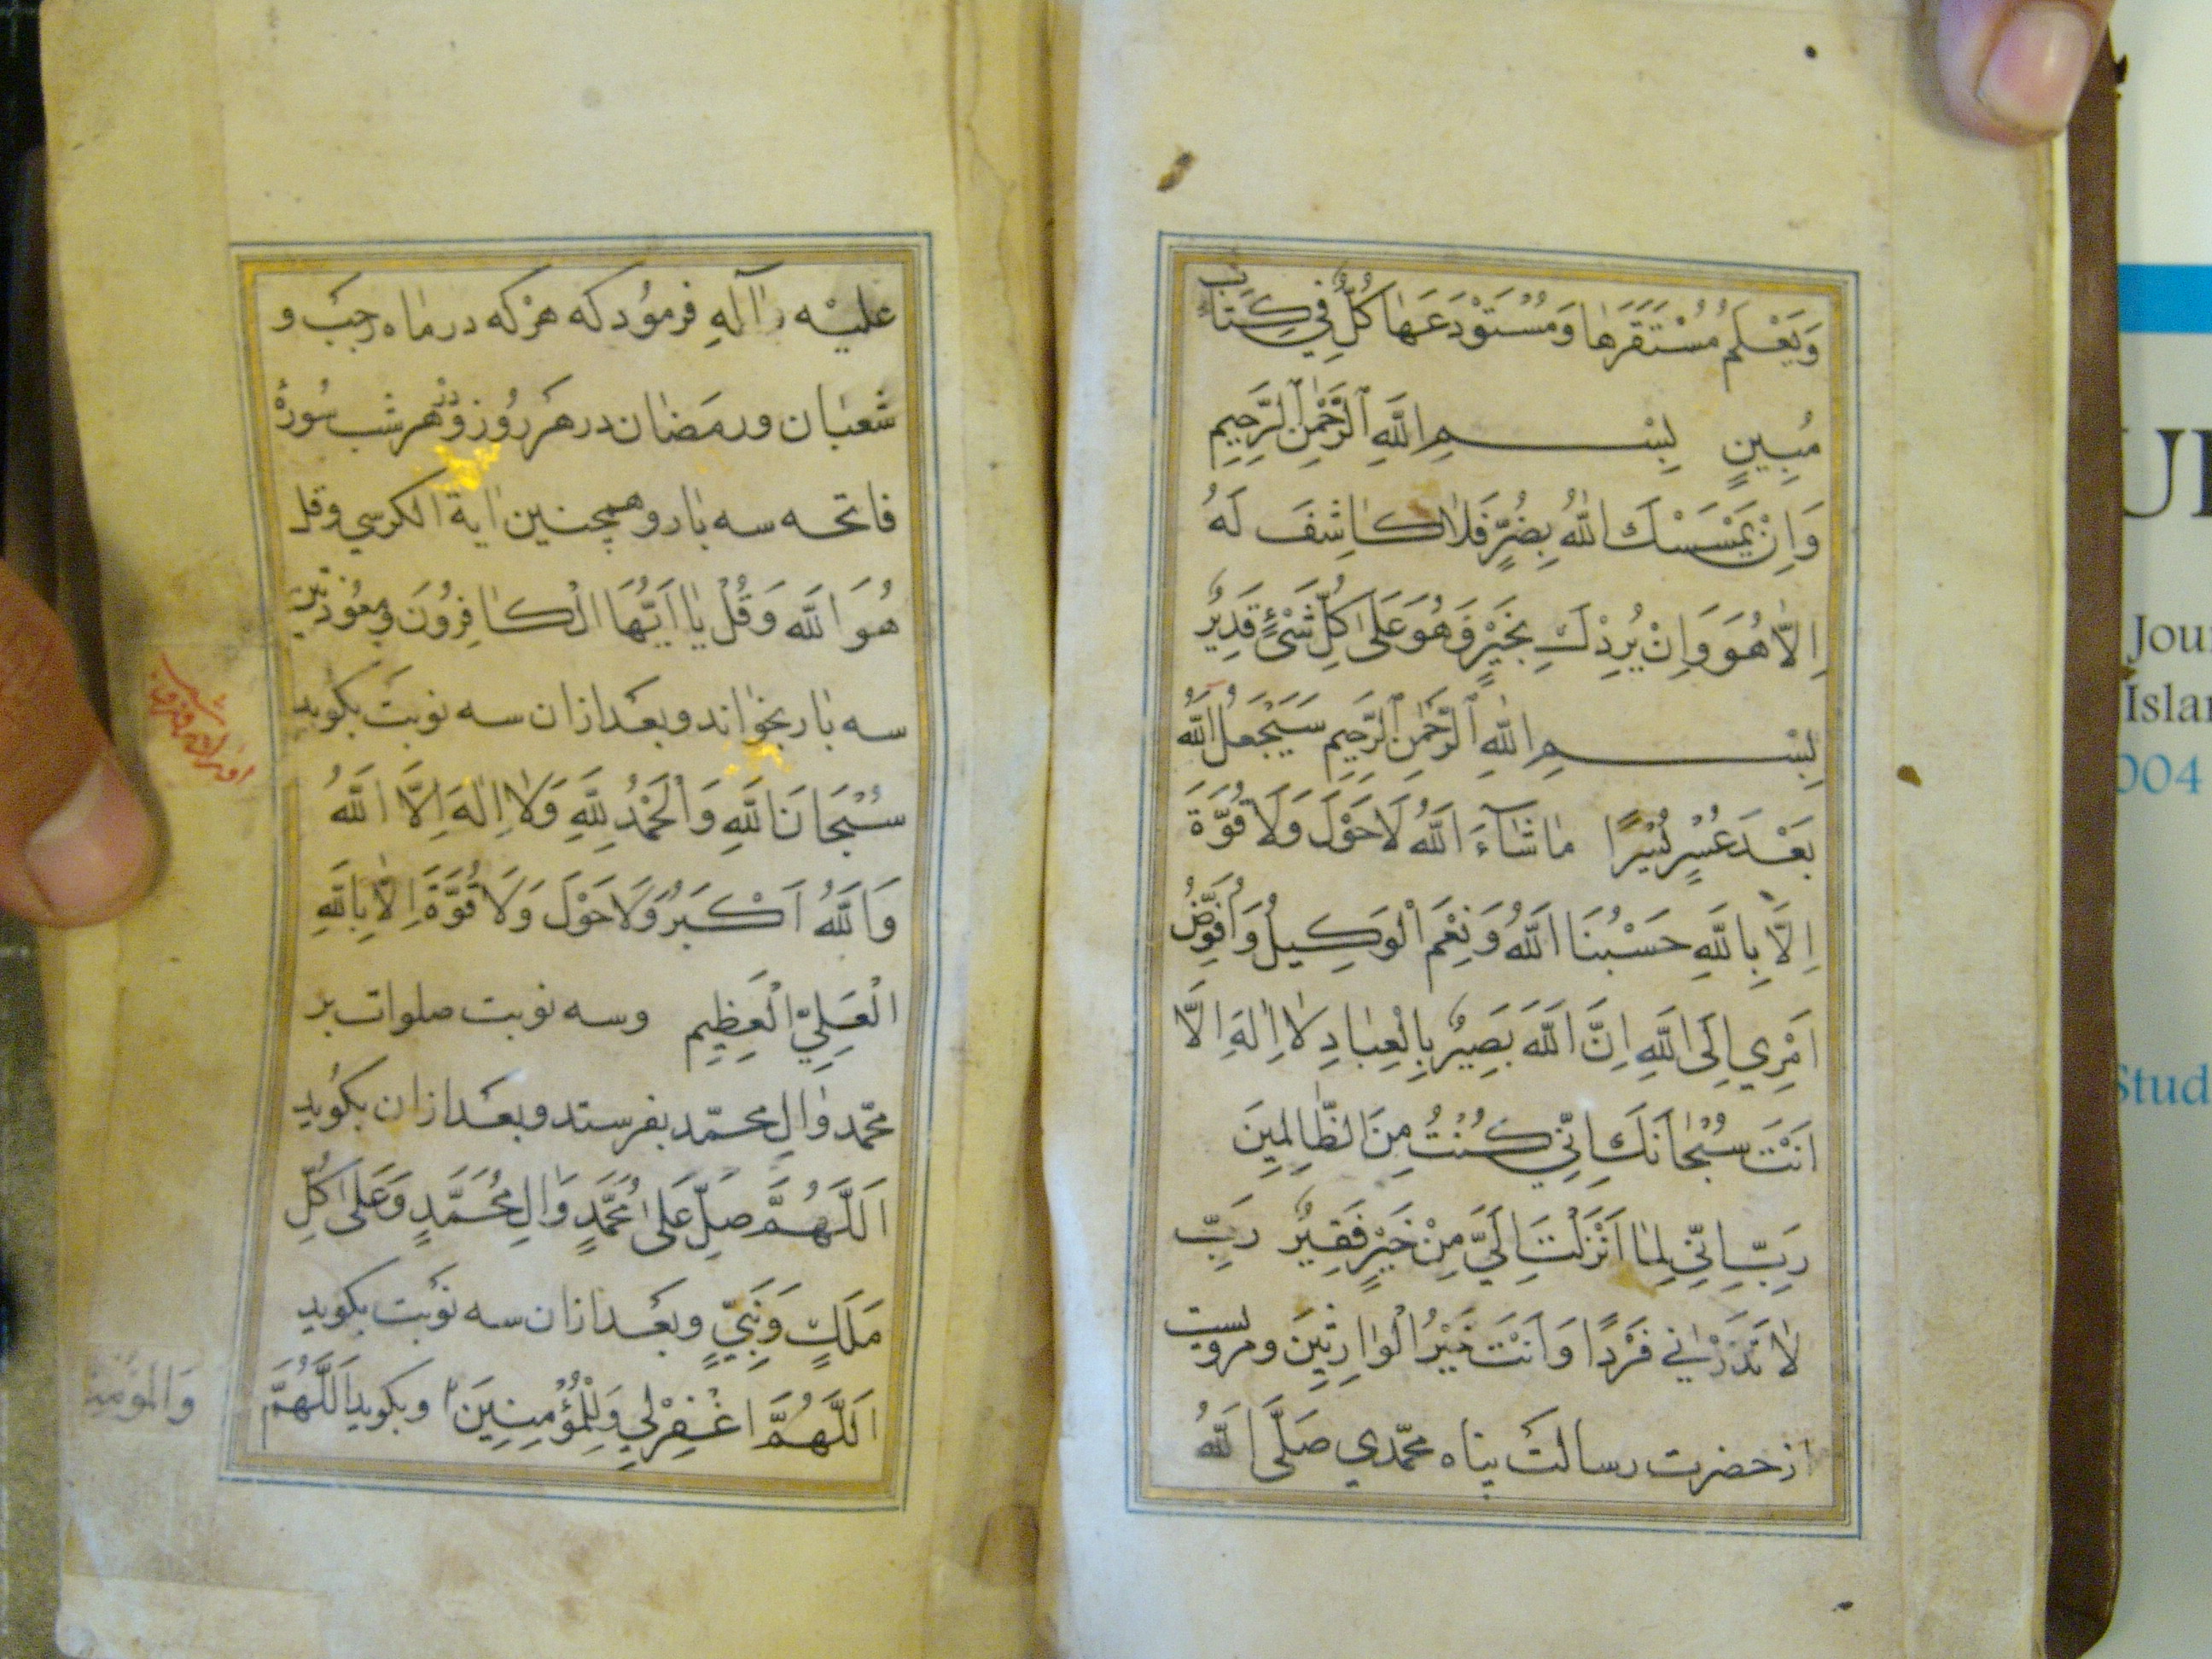 وَيَعْلَمُ مُسْتَقَرَّهَا وَمُسْتَوْدَعَهَا كُلٌّ فِي كِتَابٍ
مُبِينٍ بِسْمِ اللَّهِ الرَّحْمٰنِ الرَّحِيمِ
وَاِنْ يَمْسَسْكَ اللّٰهُ بِضُرٍّ فَلَا كَاشِفَ لَهُ
اِلَّا هُوَ وَاِنْ يُرِدْكَ بِخَيْرٍ فَهُوَ عَلَى كُلِّ شَيْءٍ قَدِيرٌ
بِسْمِ اللّٰهِ الرَّحْمٰنِ الرَّحِيمِ سَيَجْعَلُ اللَّهُ
بَعْدَ عُسْرٍ يُسْرًا مَا شَآءَ اللَّهُ لَا حَوْلَ وَلَا قُوَّةَ
اِلَّا بِاللَّهِ حَسْبُنَا اللَّهُ وَنِعْمَ الْوَكِيلُ وَاُفَوِّضُ
اَمْرِي اِلَى اللَّهِ اِنَّ اللَّهَ بَصِيرٌ بِالْعِبَادِ لَا اِلٰهَ اِلَّا
اَنْتَ سُبْحَانَكَ اِنِّي كُنْتُ مِنَ الظَّالِمِينَ
رَبِّ اِنِّي لِمَا اَنْزَلْتَ اِلَيَّ مِنْ خَيْرٍ فَقِيرٌ رَبِّ
لَا تَذَرْنِي فَرْدًا وَاَنْتَ خَيْرُ الْوَارِثِينَ و مرویست
از حضرت رسالت پناه محمّدي صَلَّى اللَّهُ
عليْه وآلهِ فرمُود که هرْکه در ماه رجَبْ و
شعبان و رمَضان در هر رُوز و در هر شب سُورهٔ
فاتحه سه بار و همچنين اية الكرسي و قل
هُوَ اللَّه وَ قُلْ يَا اَيُّهَا الْكَافِرُونَ و معوّذتين
سه بار بخواند و بعد ازان سه نوبت بكويد
سُبْحَانَ اللَّهِ وَالْحَمْدُ لِلَّهِ وَلَا اِلٰهَ اِلَّا اللَّهُ
وَاللَّهُ اَكْبَرُ وَلَا حَوْلَ وَلَا قُوَّةَ اِلَّا بِاللَّهِ
الْعَلِيِّ الْعَظِيمِ و سه نوبت صلوات بر
محمّد وال محمّد بفرستد و بعد ازان بكويد
اَللَّهُمَّ صَلِّ عَلَى مُحَمَّدٍ وَاٰلِ مُحَمَّدٍ وَعَلَى كُلِّ
مَلَكٍ وَنَبِيٍّ و بعد ازان سه نوبت بكويد
اَللَّهُمَّ اغْفِرْ لِي وَلِلْمُؤْمِنِينَ و بكويد اَللَّهُمَّ
وَالمؤمنا
004
Stud